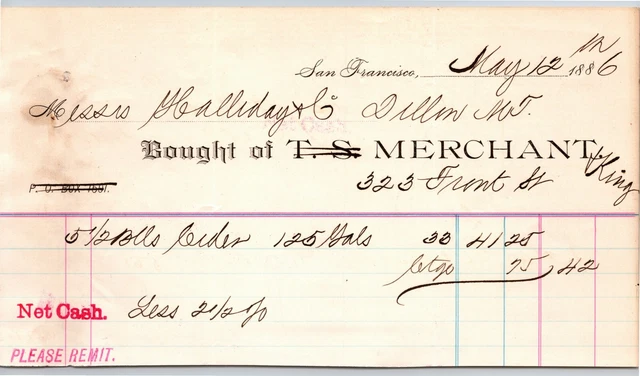 San Francisco, May 12th 1886
Messrs Halliday & Co Dillon M.T.
Bought of T. S. MERCHANT, King
P. O. BOX 1691.
323 Front St
5 1/2 Blls Cider 125 Gals 33 41 25
Ctge 75 42
Net Cash. Less 2 1/2 %
PLEASE REMIT.